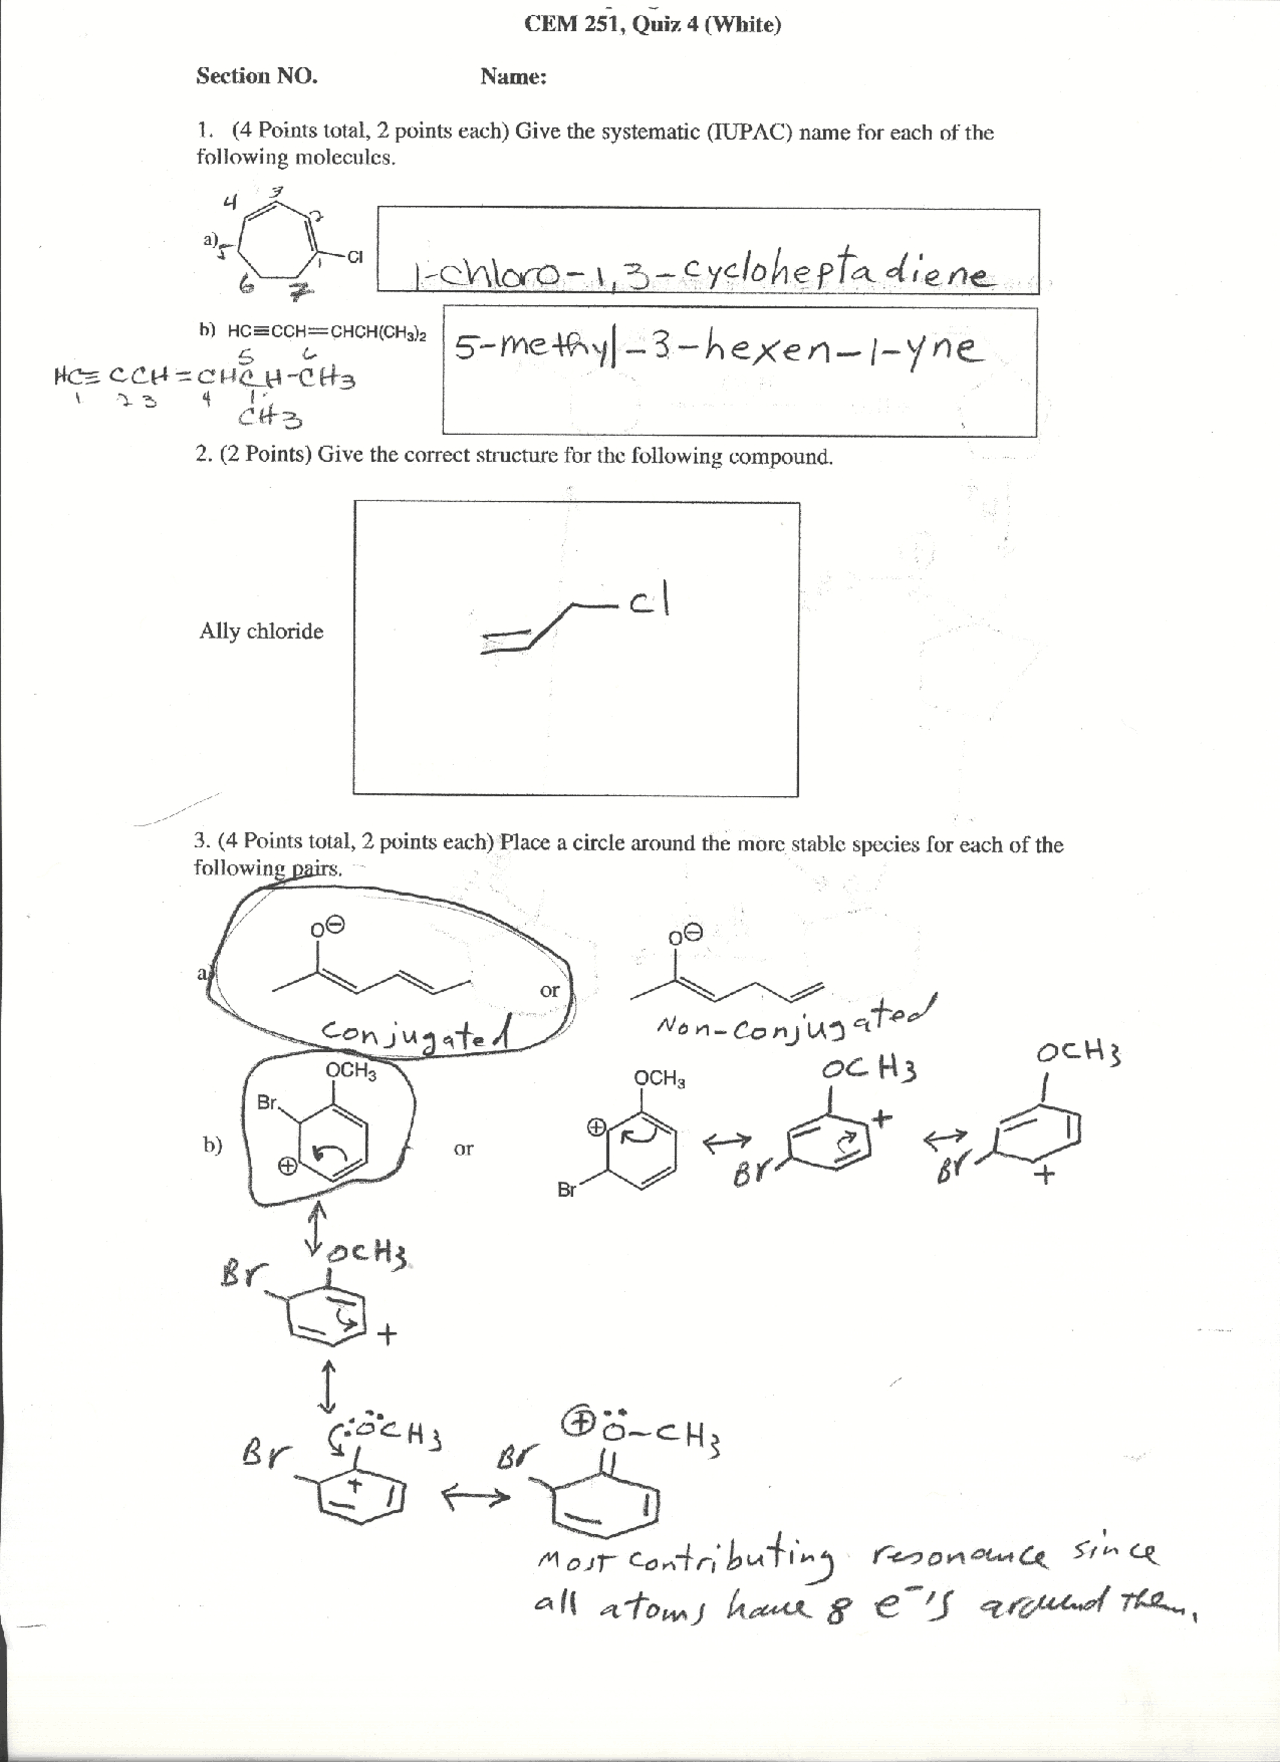 CEM 251, Quiz 4 (White)
Section NO. Name:
1. (4 Points total, 2 points each) Give the systematic (IUPAC) name for each of the
following molecules.
4 3 2
a) 5 Cl
1
6 7
1-chloro-1,3-cycloheptadiene
b) HC≡CCH=CHCH(CH3)2
5-methyl-3-hexen-1-yne
5 6
HC≡CCH=CHCH-CH3
1 2 3 4
CH3
2. (2 Points) Give the correct structure for the following compound.
Cl
Ally chloride
3. (4 Points total, 2 points each) Place a circle around the more stable species for each of the
following pairs.
O⊖ O⊖
a) or
Conjugated Non-conjugated
OCH3 OCH3 OCH3 OCH3
Br ⊕ +
b) ⊕ or Br Br Br +
OCH3
Br
+
:ÖCH3 ⊕Ö-CH3
Br + Br
Most contributing resonance since
all atoms have 8 e-'s around them.